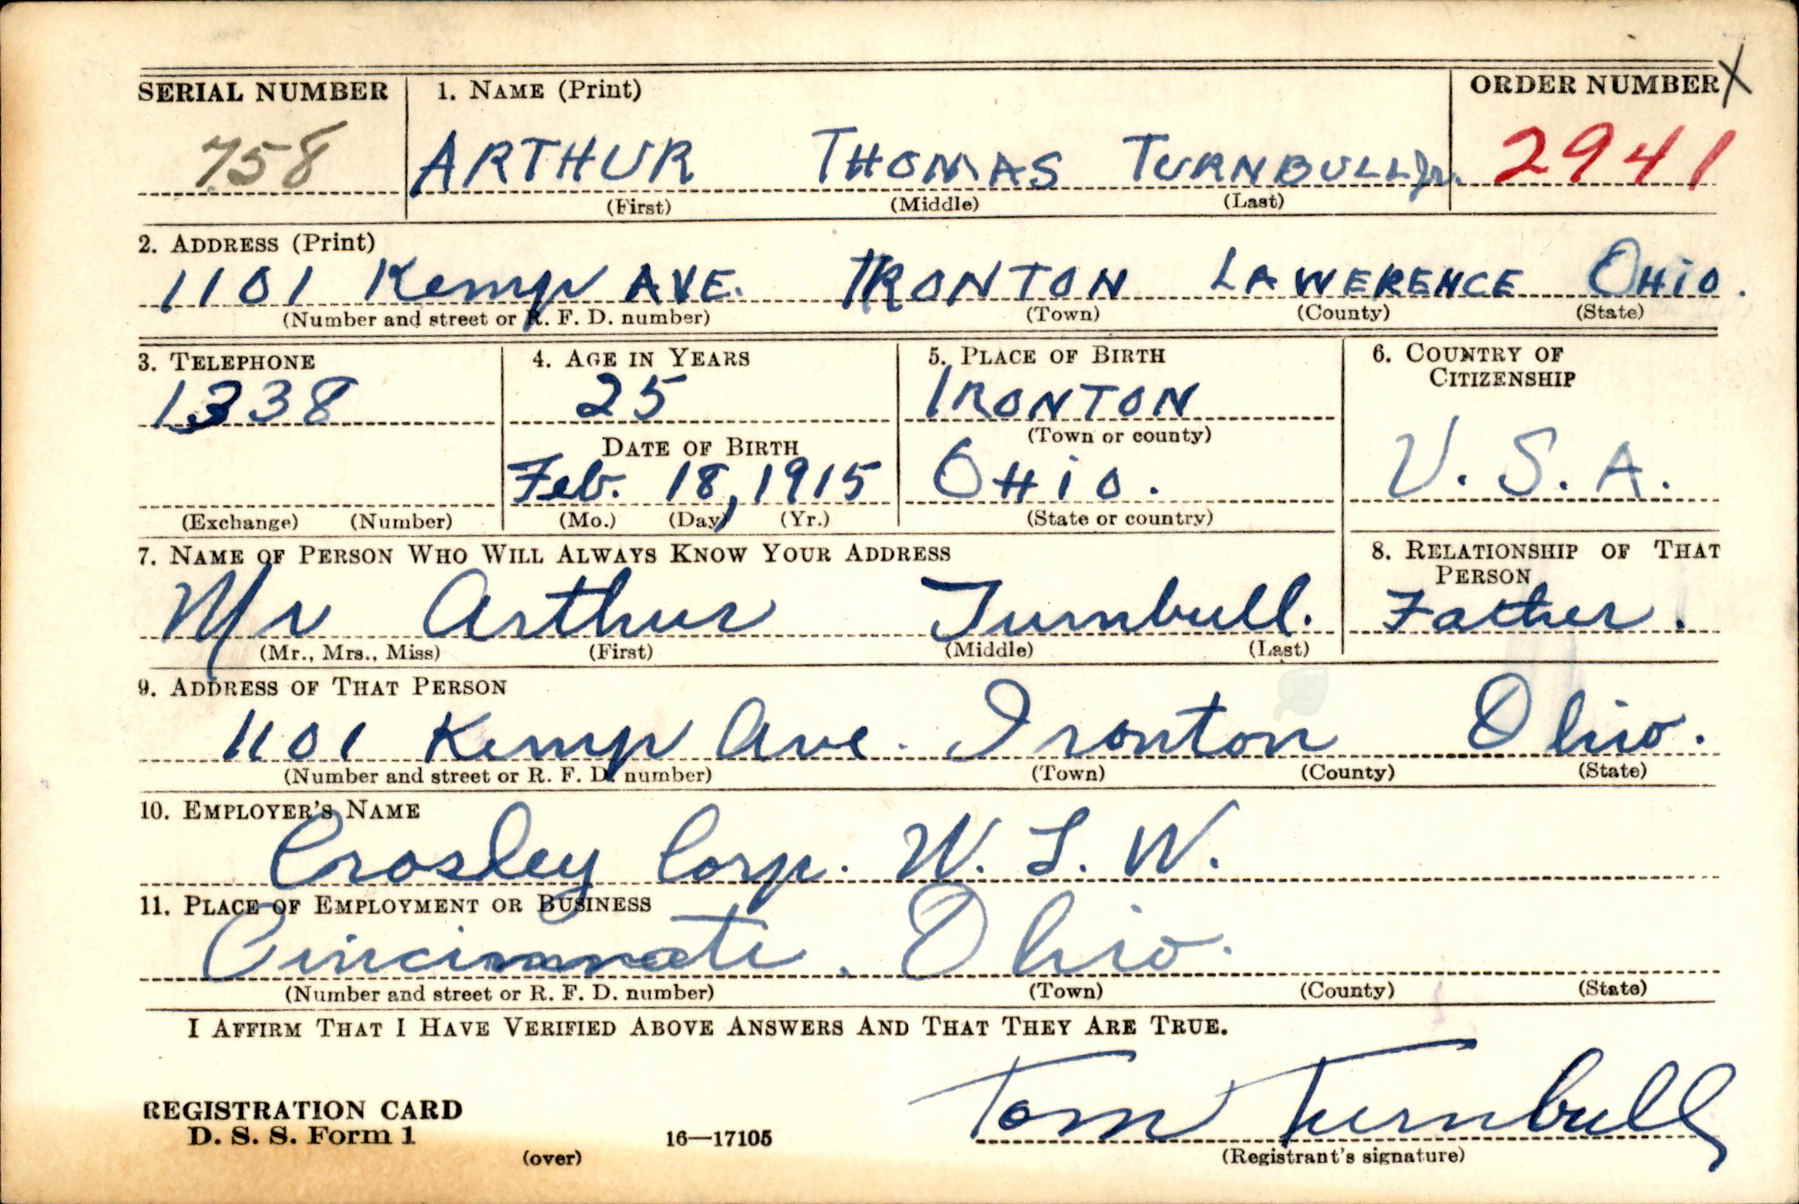 SERIAL NUMBER 1. NAME (Print) ORDER NUMBER X
758 ARTHUR THOMAS TURNBULL Jr. 2941
(First) (Middle) (Last)
2. ADDRESS (Print)
1101 Kemp AVE. IRONTON LAWERENCE OHiO.
(Number and street or R. F. D. number) (Town) (County) (State)
3. TELEPHONE 4. AGE IN YEARS 5. PLACE OF BIRTH 6. COUNTRY OF CITIZENSHIP
1338 25 IRONTON
DATE OF BIRTH (Town or county)
Feb. 18, 1915 OHiO. U. S. A.
(Exchange) (Number) (Mo.) (Day) (Yr.) (State or country)
7. NAME OF PERSON WHO WILL ALWAYS KNOW YOUR ADDRESS 8. RELATIONSHIP OF THAT PERSON
Mr Arthur Turnbull. Father.
(Mr., Mrs., Miss) (First) (Middle) (Last)
9. ADDRESS OF THAT PERSON
1101 Kemp Ave. Ironton Ohio.
(Number and street or R. F. D. number) (Town) (County) (State)
10. EMPLOYER'S NAME
Crosley Corp. W. L. W.
11. PLACE OF EMPLOYMENT OR BUSINESS
Cincinnati. Ohio.
(Number and street or R. F. D. number) (Town) (County) (State)
I AFFIRM THAT I HAVE VERIFIED ABOVE ANSWERS AND THAT THEY ARE TRUE.
Tom Turnbull
REGISTRATION CARD
D. S. S. Form 1 16—17105
(over) (Registrant's signature)